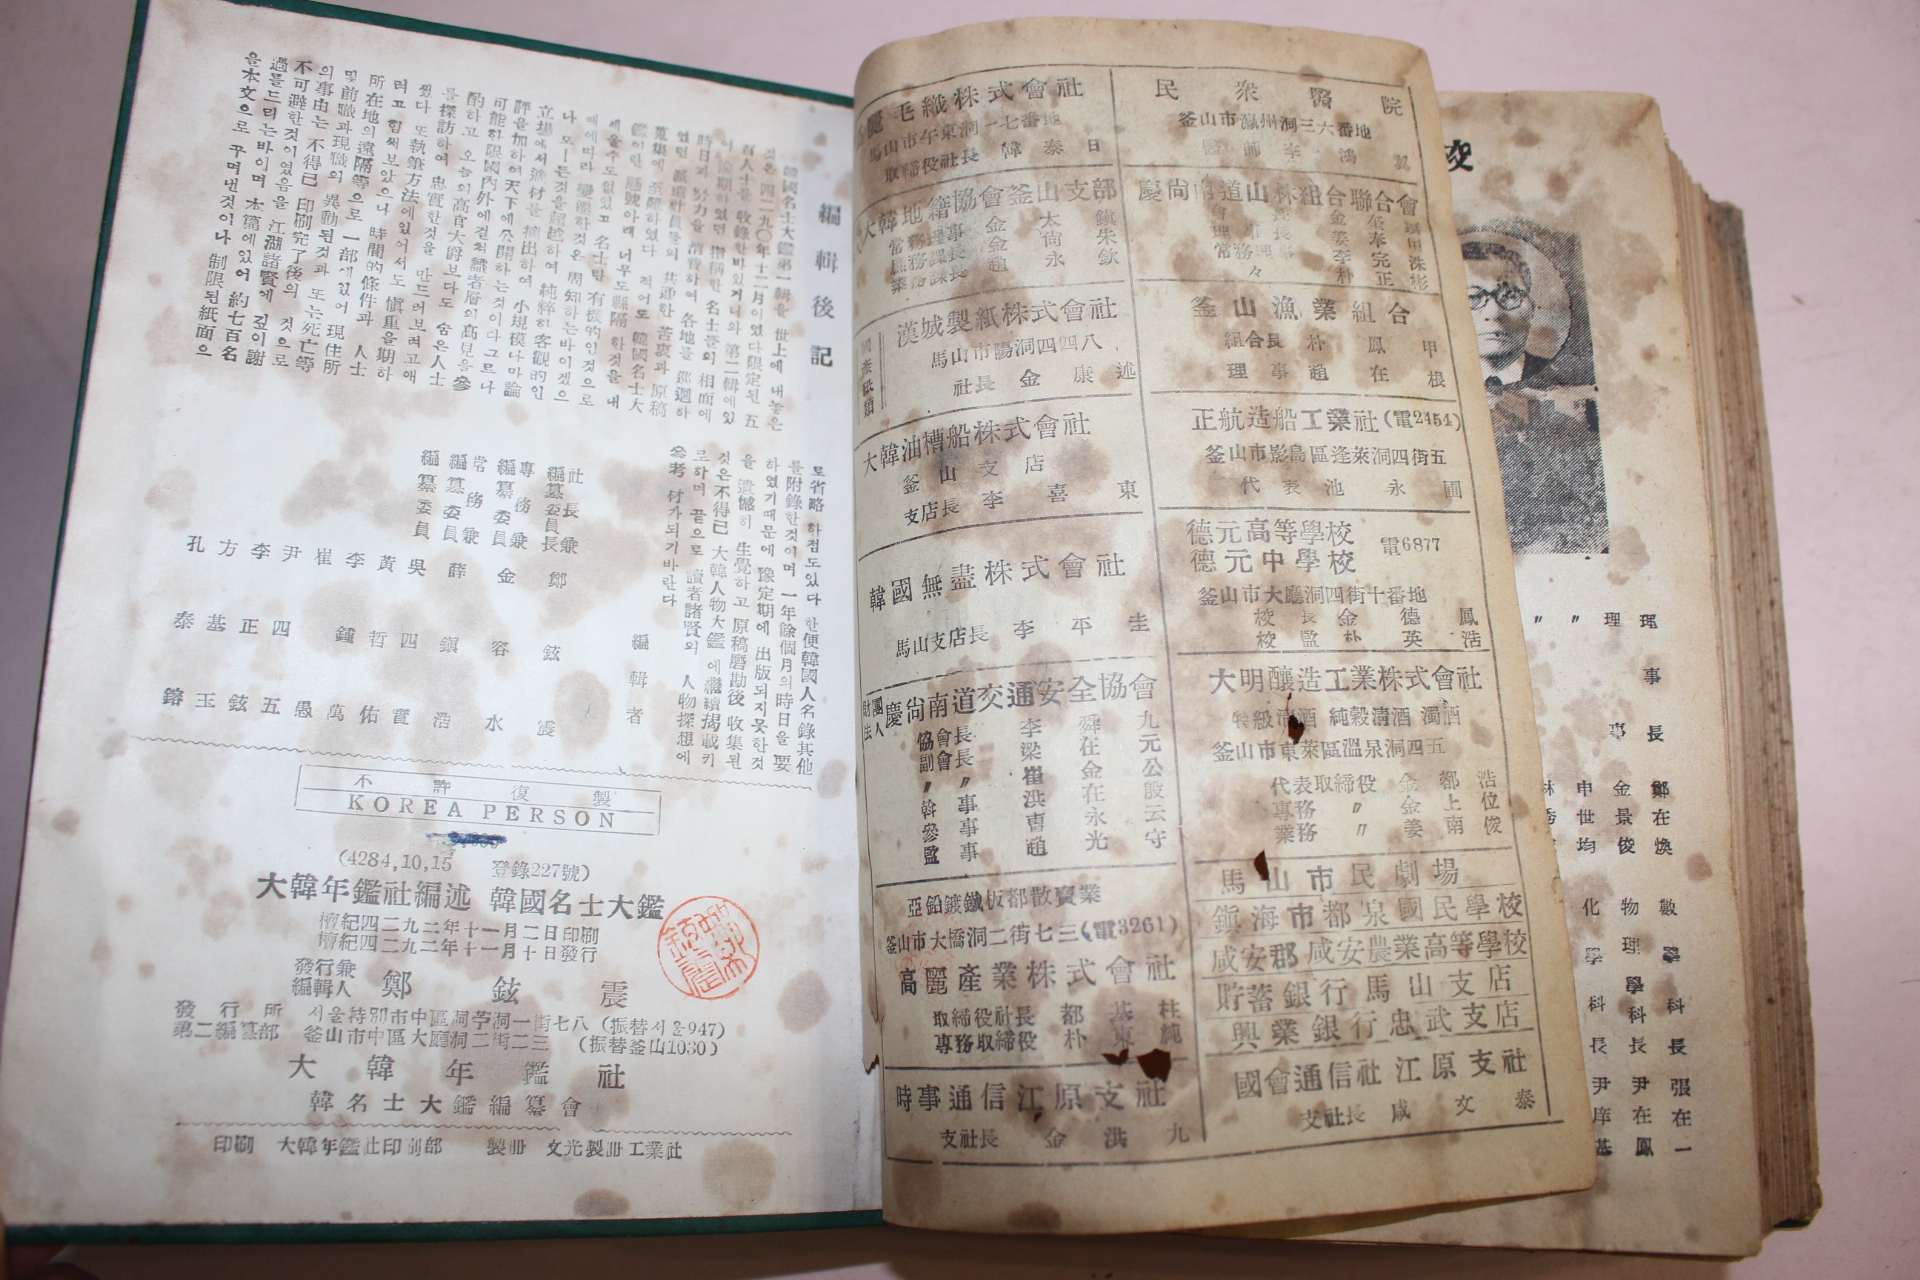 編輯後記
韓國名士大鑑第一輯을 世上에 내놓은
것은 四二九〇年十二月이였다 限定된 五
百人士를 收錄한바있거니와 第二輯에있
어 豫期하였던 指稱한 名士들의 相面에
時日과 努力을 消費하여 各地를 巡廻하
였던 派遣社員들의 共通한 苦衷과 原稿
蒐集에 至難하였다 적어도 韓國名士大
鑑이란 懸號아래 너무도 縣隔하것을 내
세울수도없었고 名士란 有機的인것으로
때에따라 變動하것은 周知하는바이겠으
나 모ー든것을超越하여 純粹하客觀的인
立場에서 選材를 摘出하여 小規模나마論
評을加하여天下에公開하는것이다그므나
可能하限國內外에걸처識者層의高見을參
酌하고 오늘의高官大爵보다도 숨은人士
를探訪하여 忠實한것을 만드러보려고애
썼다 또執筆方法에있어서도 愼重을期하
며고 힘써보았으나 時間的條件과 人士
所在地의遠隔等으로 一部에있어 現住所
및前職과現職의 異動된것과 또는死亡等
의事由는 不得已 印刷完了後의 것으로
不可避한것이였음을 江湖諸賢에 깊이謝
過를드리는바이며 本篇에있어 約七百名
을本文으로 꾸며낸것이나 制限된紙面으
로省略 하점도있다 한便韓國人名錄其他
를附錄한것이며 一年餘個月의時日을要
하였기때문에 豫定期에 出版되지못한것
을 遺憾히 生覺하고 原稿磨勘後 收集된
것은不得已 大韓人物大鑑 에繼續揭載키
로하며 끝으로 讀者諸賢의 人物探想에
參考 材가되기바란다
編輯者
社長兼編纂委員長 鄭鉉震
專務兼編纂委員 金容水
常務兼編纂委員 薛鎭浩
編纂委員
吳四實
黃哲佑
李鍾萬
崔愚
尹四五
李正鉉
方基玉
孔泰鎔
不許復製
KOREA PERSON
(4284,10,15 登錄227號)
大韓年鑑社編述 韓國名士大鑑
檀紀四二九二年十一月二日印刷
檀紀四二九二年十一月十日發行
發行兼編輯人 鄭鉉震
發行所 서울特別市中區洞一街七八(振替서울947)
第二編纂部 釜山市中區大廳洞二街二三 (振替釜山1030)
大韓年鑑社
韓名士大鑑編纂會
印刷 大韓年鑑社印刷部 製冊 文光製冊工業社
毛織株式會社
馬山市午東洞一七番地
取締役社長 韓泰日
大韓地籍協會釜山支部
常務理事 金太鎭
庶務課長 金尙朱
業務課長 趙永欽
漢城製紙株式會社
馬山市陽洞四四八
社長 金康述
大韓油槽船株式會社
釜山支店
支店長 李喜東
韓國無盡株式會社
馬山支店長 李丕圭
財團法人 慶尙南道交通安全協會
協會長 李舜九
副會長 梁在元
〃 崔金公
幹事 洪在殷
參事 曺永云
監事 趙光守
亞鉛鍍鐵板都散賣業
釜山市大橋洞二街七三(電3261)
高麗產業株式會社
取締役社長 都基柱
專務取締役 朴東純
時事通信江原支社
支社長 金洪九
民衆醫院
釜山市瀛州洞三六番地
醫師 李鴻翼
慶尙南道山林組合聯合會
釜山漁業組合
組合長 朴鳳甲
理事 趙在根
正航造船工業社(電2454)
釜山市影島區蓬萊洞四街五
代表 池永圃
德元高等學校
德元中學校
電6877
釜山市大廳洞四街十番地
校長 金德鳳
校監 朴英浩
大明釀造工業株式會社
特級淸酒 純穀淸酒 濁酒
釜山市東萊區溫泉洞四五
代表取締役 金都浩
專務 〃 金上位
業務 〃 姜南俊
馬山市民劇場
鎭海市都泉國民學校
咸安郡咸安農業高等學校
貯蓄銀行馬山支店
興業銀行忠武支店
國會通信社江原支社
支社長 咸文泰
校
理事長 鄭在煥
理事 金景俊
〃 申世均
〃
數學科長 張在一
物理學科長 尹在鳳
化學科長